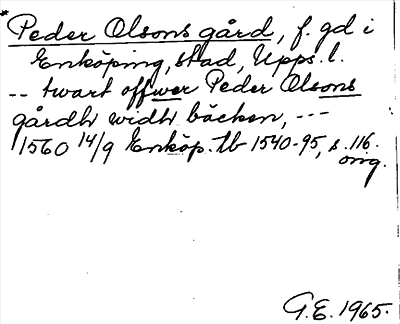 * Peder Olsons gård, f. gd i
Enköping, stad, Upps. l.
-- twart offwer Peder Olsons
gårdh widh bäcken, ---
1560 14/9 Enköp. tb 1540-95, s. 116.
orig.
G.E. 1965.